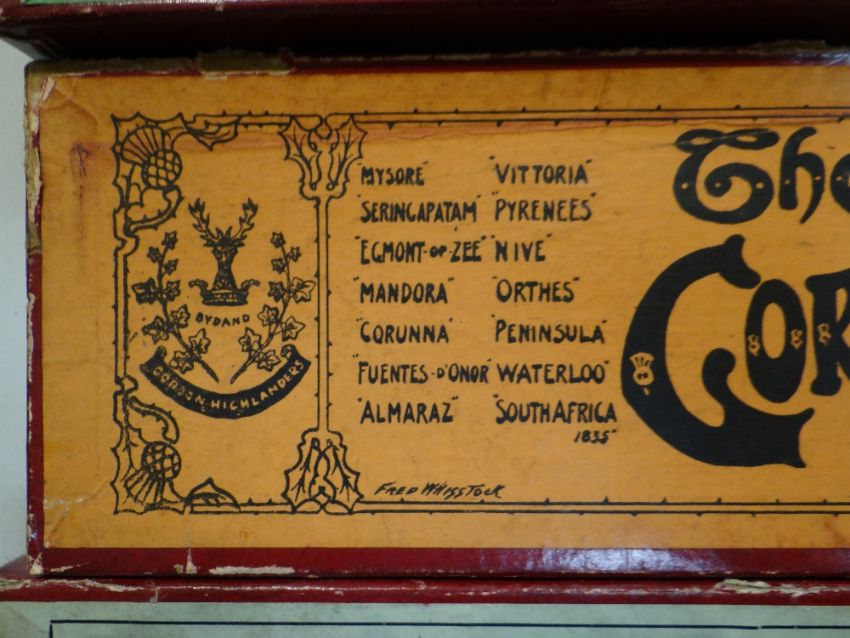 BYDAND
GORDON HIGHLANDERS
"MYSORE"
"SERINGAPATAM"
"EGMONT-OP-ZEE"
"MANDORA"
"CORUNNA"
"FUENTES-D'ONOR"
"ALMARAZ"
"VITTORIA"
"PYRENEES"
"NIVE"
"ORTHES"
"PENINSULA"
"WATERLOO"
"SOUTH AFRICA
1835"
FRED WHISSTOCK
The
GOR